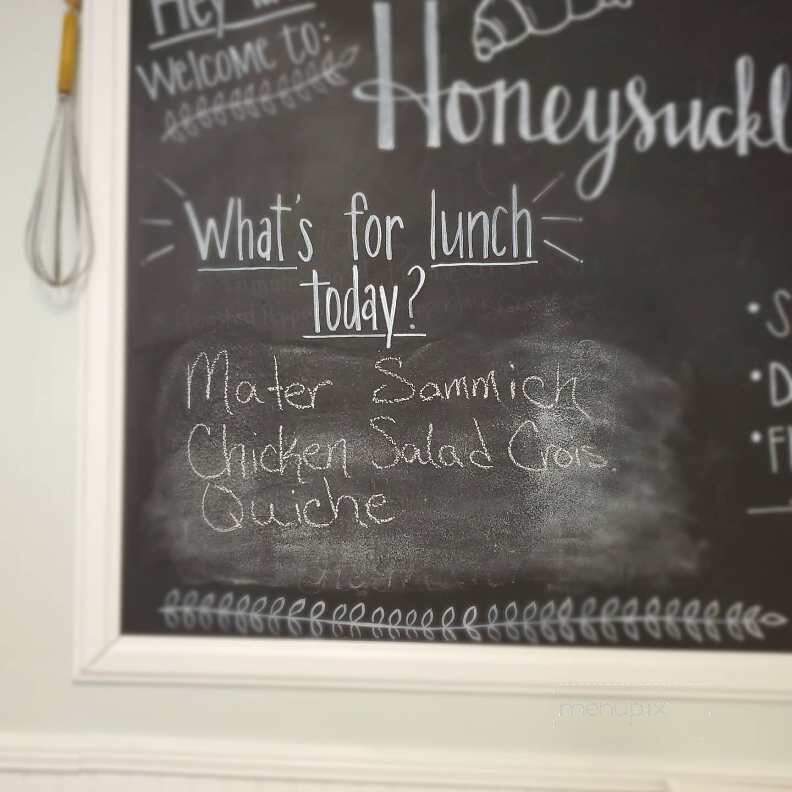 Hey
Welcome to:
Honeysuckl
What's for lunch
today?
Mater Sammich
Chicken Salad Crois.
Quiche
menupix